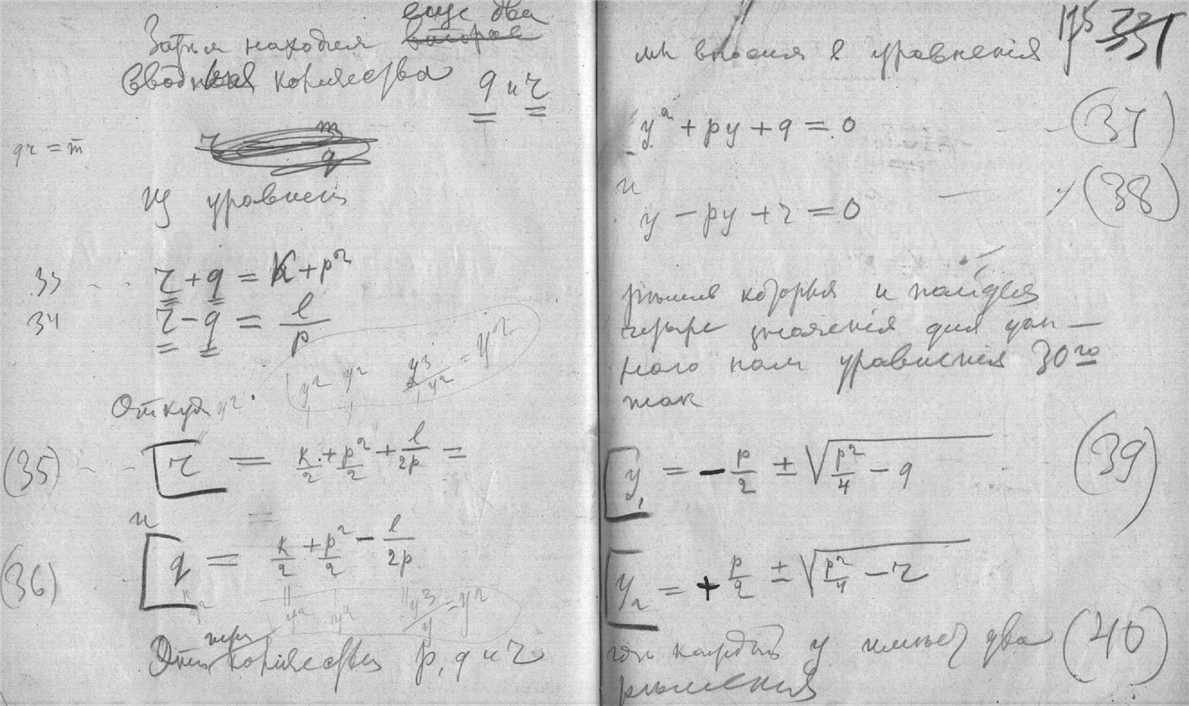 Затем находим еще два
вводных количества q и r
qr = m
r m
q
из уравнен
33 r + q = k + p²
34 r − q = l/p
y² y² y³/y² = y²
Откуда y²
(35) r = k/2 + p²/2 + l/2p =
и
(36) q = k/2 + p²/2 − l/2p
y² y² y² y³/y = y²
Эти три количества p, q и r
175 331
мы вносим в уравнения
y² + py + q = 0 (37)
и
y − py + r = 0 (38)
решив которыя и найдем
четыре значения для дан—
ного нам уравнения 30го
так
y₁ = − p/2 ± √(p²/4 − q) (39)
y₂ = + p/2 ± √(p²/4 − r) (40)
где каждый y имеет два
решения